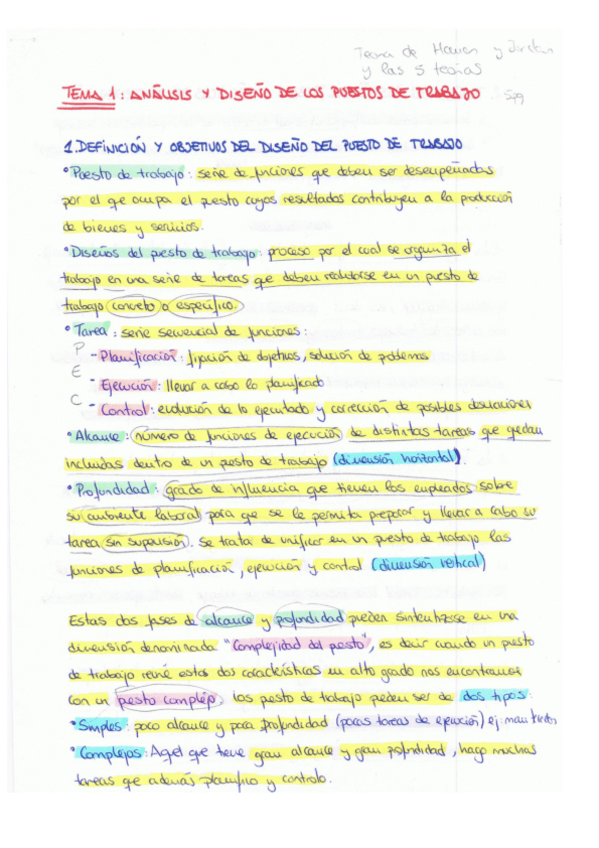 Teoria de Havion y Jordan
y las 5 teorias
TEMA 1: ANÁLISIS Y DISEÑO DE LOS PUESTOS DE TRABAJO
1. DEFINICIÓN Y OBJETIVOS DEL DISEÑO DEL PUESTO DE TRABAJO
• Puesto de trabajo: serie de funciones que deben ser desempeñadas
por el qe ocupa el puesto cuyos resultados contribuyen a la producción
de bienes y servicios.
• Diseños del puesto de trabajo: proceso por el cual se organiza el
trabajo en una serie de tareas que deben realizarse en un puesto de
trabajo concreto o específico.
• Tarea: serie secuencial de funciones:
P - Planificación: fijación de objetivos, solución de problemas
E - Ejecución: llevar a cabo lo planificado
C - Control: evolución de lo ejecutado y corrección de posibles desviaciones
• Alcance: número de funciones de ejecución de distintas tareas que quedan
incluidas dentro de un pesto de trabajo (dimensión horizontal).
• Profundidad: grado de influencia que tienen los empleados sobre
su ambiente laboral para que se le permita preparar y llevar a cabo su
tarea sin supervisión. Se trata de unificar en un puesto de trabajo las
funciones de planificación, ejecución y control (dimensión vertical)
Estas dos fases de alcance y profundidad pueden sintentizarse en una
dimensión denominada "Complejidad del pesto", es decir cuando un pesto
de trabajo reúne estas dos características en alto grado nos encontramos
con un pesto complejo. Los pesto de trabajo peden ser de dos tipos:
• Simples: poco alcance y poca profundidad (pocas tareas de ejecución) ej:
• Complejos: Aqel que tiene gran alcance y gran profundidad, hago muchas
tareas que además planifico y controlo.